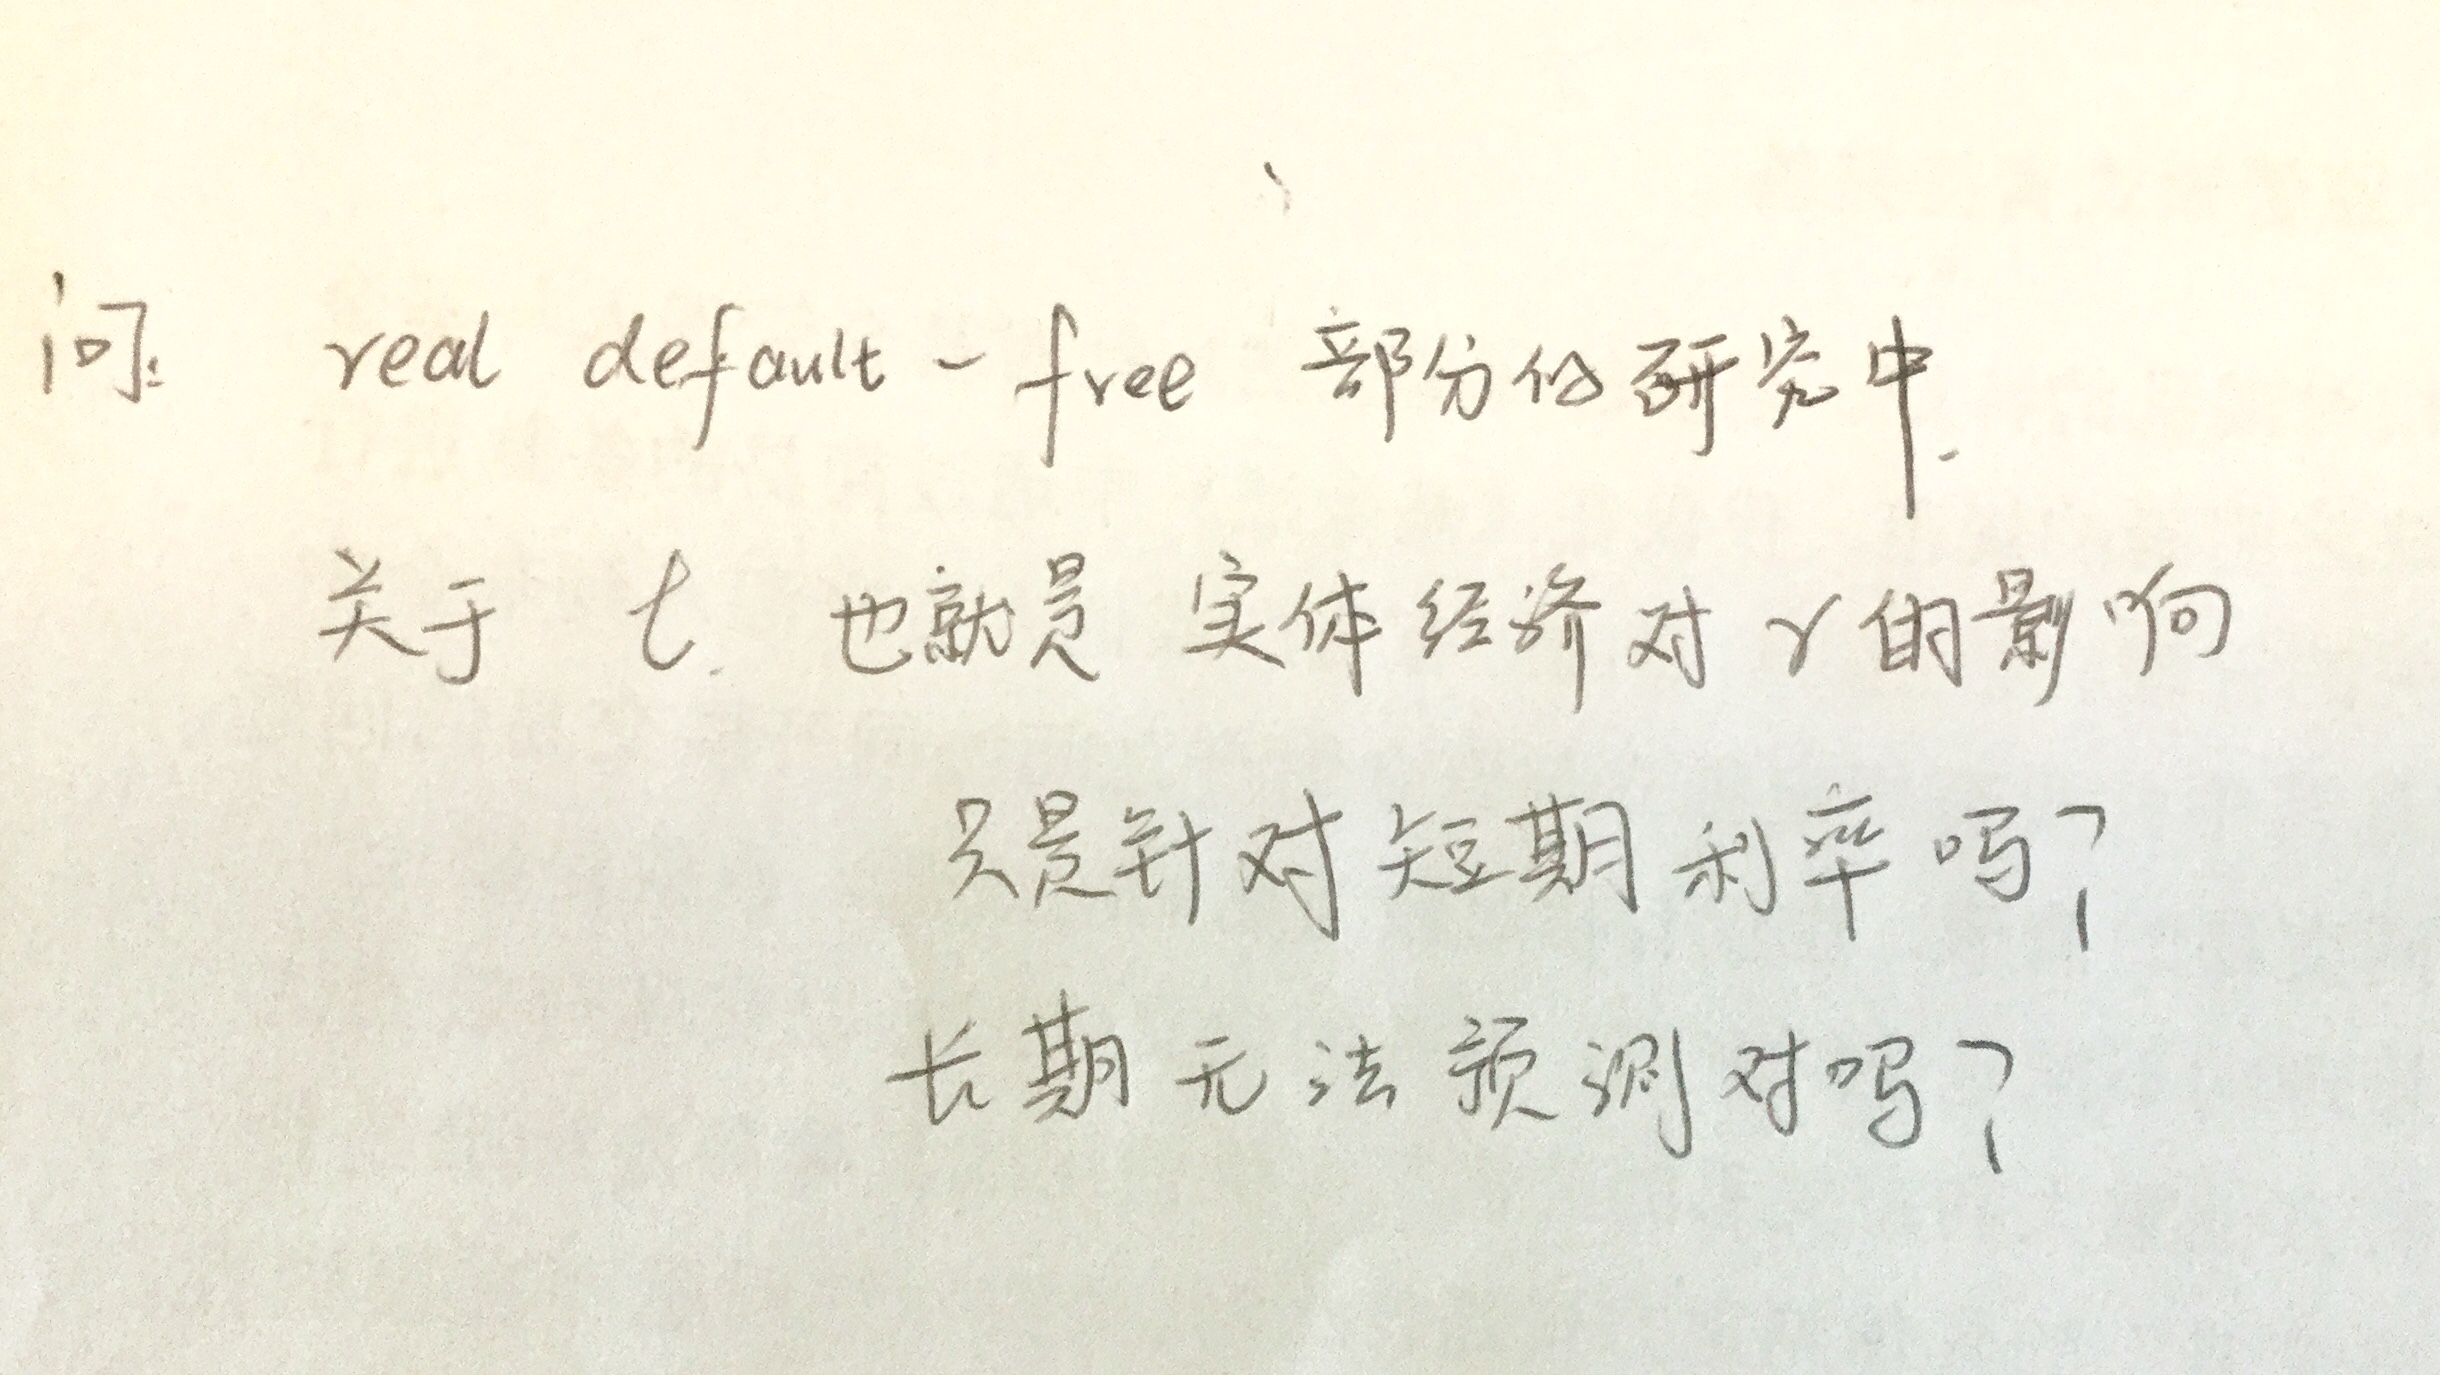 问: real default-free 部分的研究中.
关于 t. 也就是 实体经济对 r 的影响
只是针对短期利率吗?
长期无法预测对吗?